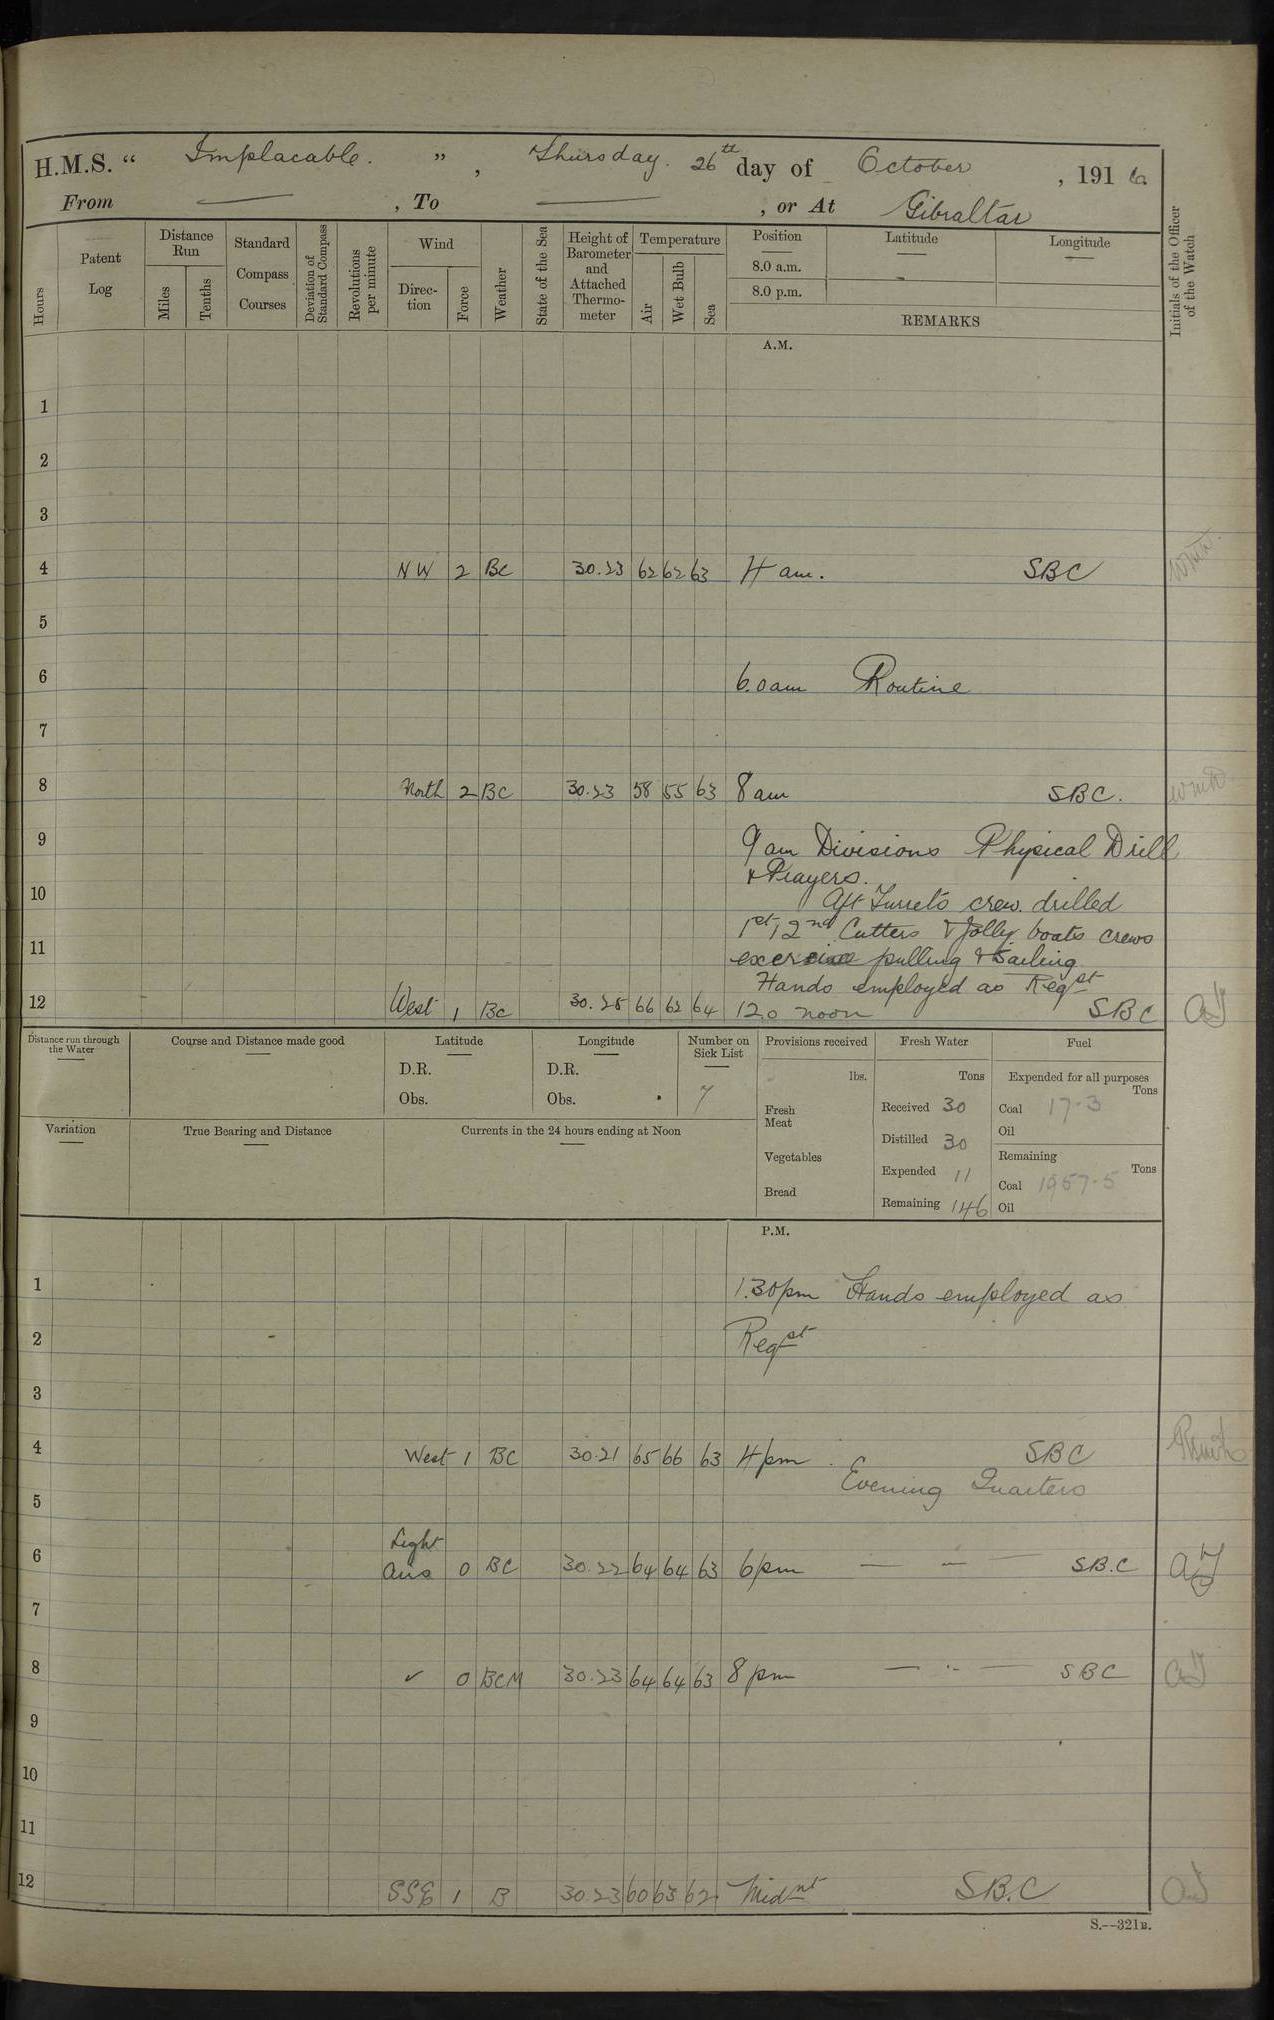 H.M.S. “ Implacable. ” , Thursday. 26th day of October , 1916
From — , To — , or At Gibraltar
Hours
Patent Log
Distance Run
Miles
Tenths
Standard Compass Courses
Deviation of Standard Compass
Revolutions per minute
Wind
Direction
Force
Weather
State of the Sea
Height of Barometer and Attached Thermometer
Temperature
Air
Wet Bulb
Sea
Position
8.0 a.m.
8.0 p.m.
Latitude
Longitude
REMARKS
Initials of the Officer of the Watch
A.M.
1
2
3
4 NW 2 Bc 30.23 62 62 63 4 am. SBC
5
6 6.0am Routine
7
8 North 2 BC 30.23 58 55 63 8 am SBC.
9 9 am Divisions Physical Drill
& Prayers.
10 Aft Turrets crew drilled
1st, 2nd Cutters & Jolly boats crews
11 exercise pulling & Sailing
Hands employed as Reqst
12 West 1 Bc 30.25 66 62 64 12.0 noon SBC
Distance run through the Water
Course and Distance made good
Latitude
D.R.
Obs.
Longitude
D.R.
Obs.
Number on Sick List
7
Provisions received
lbs.
Fresh Meat
Vegetables
Bread
Fresh Water
Tons
Received 30
Distilled 30
Expended 11
Remaining 146
Fuel
Expended for all purposes
Tons
Coal 17.3
Oil
Remaining
Tons
Coal 1957.5
Oil
Variation
True Bearing and Distance
Currents in the 24 hours ending at Noon
P.M.
1 1.30pm Hands employed as
2 Reqst
3
4 West 1 BC 30.21 65 66 63 4pm . SBC
Evening Quarters
5
Light
6 Airs 0 BC 30.22 64 64 63 6pm — — — SB.C
7
8 ✓ 0 BCM 30.23 64 64 63 8 pm — — SBC
9
10
11
12 SSE 1 B 30.23 60 63 62 Midnt SB.C
S.—321B.